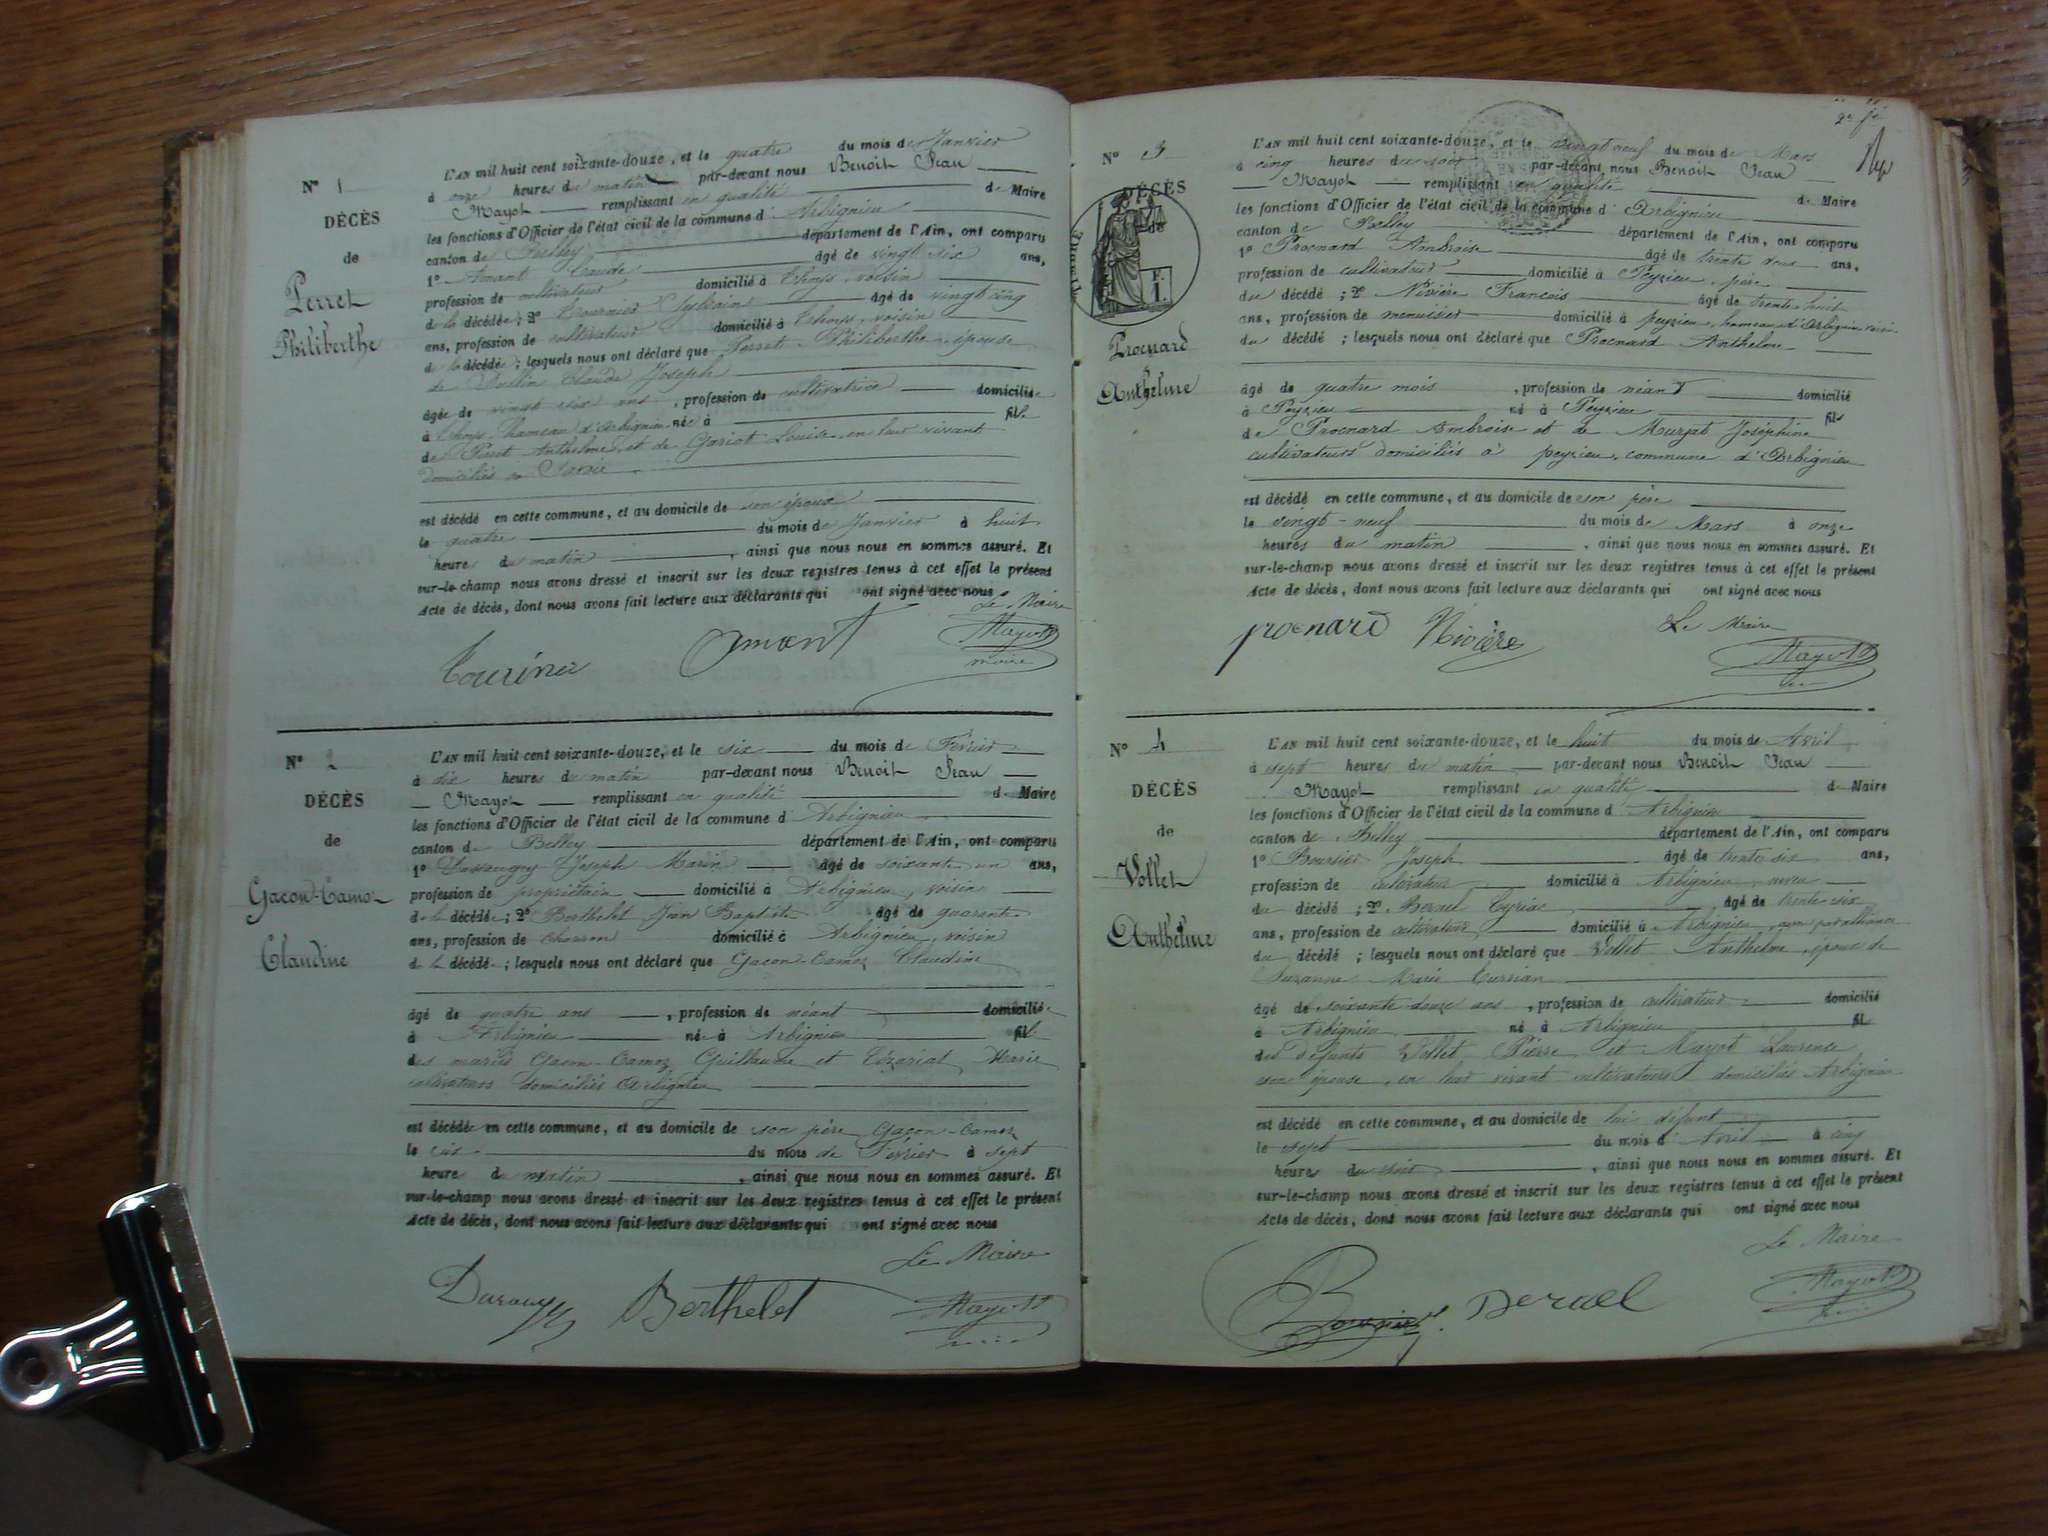 N° 1
DÉCÈS
de
Perret
Philiberthe
L'AN mil huit cent soixante-douze, et le quatre du mois de Janvier
à onze heures du matin par-devant nous Benoit Jean
Mayot remplissant en qualité de Maire
les fonctions d'Officier de l'état civil de la commune d'Arbignieu
canton de Belley département de l'Ain, ont comparu
1° Amant Claude âgé de vingt six ans,
profession de cultivateur domicilié à Thoys, voisin
de la décédée; 2° Tournier Sylvain âgé de vingt cinq
ans, profession de cultivateur domicilié à Thoys, voisin
de la décédée; lesquels nous ont déclaré que Perret Philiberthe, épouse
de Dullin Claude Joseph
âgée de vingt six ans, profession de cultivatrice domiciliée
à Thoys, hameau d'Arbignieu née à fille
de Perret Anthelme, et de Gariot Louise, en leur vivant
domiciliés en Savoie
est décédé en cette commune, et au domicile de son époux
le quatre du mois de Janvier à huit
heure du matin, ainsi que nous nous en sommes assuré. Et
sur-le-champ nous avons dressé et inscrit sur les deux registres tenus à cet effet le présent
Acte de décès, dont nous avons fait lecture aux déclarants qui ont signé avec nous
Le Maire
Amant
Mayot
maire
N° 2
DÉCÈS
de
Gacon-Camoz
Claudine
L'AN mil huit cent soixante-douze, et le six du mois de Février
à dix heures du matin par-devant nous Benoit Jean
Mayot remplissant en qualité de Maire
les fonctions d'Officier de l'état civil de la commune d'Arbignieu
canton de Belley département de l'Ain, ont comparu
1° Joseph Marin âgé de soixante un ans,
profession de propriétaire domicilié à Arbignieu, voisin
de la décédée; 2° Berthelet Jean Baptiste âgé de quarante
ans, profession de charron domicilié à Arbignieu, voisin
de la décédée; lesquels nous ont déclaré que Gacon-Camoz Claudine
âgé de quatre ans, profession de néant domiciliée
à Arbignieu née à Arbignieu fille
des mariés Gacon-Camoz Guillaume et Marie
cultivateurs domiciliés Arbignieu
est décédée en cette commune, et au domicile de son père Gacon-Camoz
le six du mois de Février à sept
heure du matin, ainsi que nous nous en sommes assuré. Et
sur-le-champ nous avons dressé et inscrit sur les deux registres tenus à cet effet le présent
Acte de décès, dont nous avons fait lecture aux déclarants qui ont signé avec nous
Le Maire
Berthelet
Mayot
N° 3
DÉCÈS
de
TIMBRE
F.
1.
Procnard
Anthelme
2e ft
L'AN mil huit cent soixante-douze, et le vingt neuf du mois de Mars
à cinq heures du soir par-devant nous Benoit Jean
Mayot remplissant en qualité de Maire
les fonctions d'Officier de l'état civil de la commune d'Arbignieu
canton de Belley département de l'Ain, ont comparu
1° Procnard Ambroise âgé de trente deux ans,
profession de cultivateur domicilié à Peyzieu, père
du décédé; 2° Nivière François âgé de trente huit
ans, profession de menuisier domicilié à peyzieu, hameau d'Arbignieu, voisin
du décédé; lesquels nous ont déclaré que Procnard Anthelme
âgé de quatre mois, profession de néant domicilié
à Peyzieu né à Peyzieu fils
de Procnard Ambroise et de Murjat Joséphine
cultivateurs domiciliés à peyzieu, commune d'Arbignieu
est décédé en cette commune, et au domicile de son père
le vingt-neuf du mois de Mars à onze
heures du matin, ainsi que nous nous en sommes assuré. Et
sur-le-champ nous avons dressé et inscrit sur les deux registres tenus à cet effet le présent
Acte de décès, dont nous avons fait lecture aux déclarants qui ont signé avec nous
procnard Nivière
Le Maire
Mayot
N° 4
DÉCÈS
de
Vollet
Anthelme
L'AN mil huit cent soixante-douze, et le huit du mois de Avril
à sept heures du matin par-devant nous Benoit Jean
Mayot remplissant en qualité de Maire
les fonctions d'Officier de l'état civil de la commune d'Arbignieu
canton de Belley département de l'Ain, ont comparu
1° Boursier Joseph âgé de trente six ans,
profession de cultivateur domicilié à Arbignieu neveu
du décédé; 2° Bernel Cyriac âgé de trente six
ans, profession de cultivateur domicilié à Arbignieu, par alliance
du décédé; lesquels nous ont déclaré que Vollet Anthelme, époux de
Suzanne Marie
âgé de soixante douze ans, profession de cultivateur domicilié
à Arbignieu né à Arbignieu fil
des défunts Vollet Pierre et Mayot Laurence
son épouse, en leur vivant cultivateurs domiciliés Arbignieu
est décédé en cette commune, et au domicile de lui défunt
le sept du mois d'Avril à cinq
heures du soir, ainsi que nous nous en sommes assuré. Et
sur-le-champ nous avons dressé et inscrit sur les deux registres tenus à cet effet le présent
Acte de décès, dont nous avons fait lecture aux déclarants qui ont signé avec nous
Le Maire
Mayot